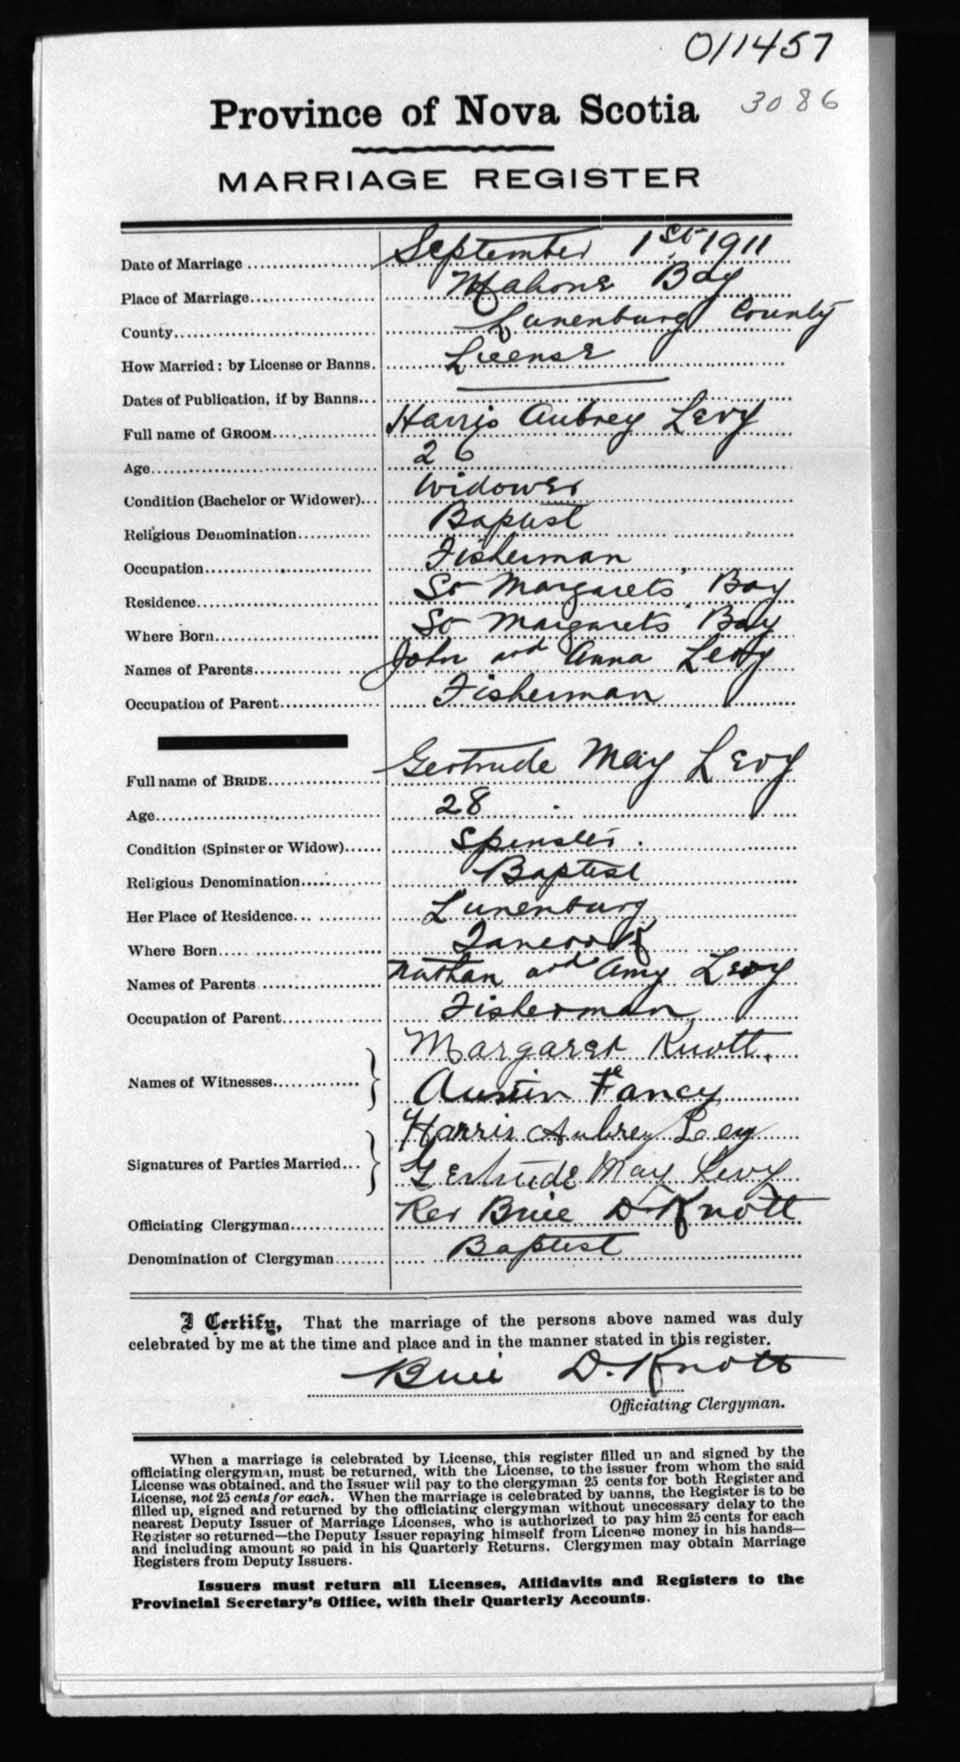 011457
3086
Province of Nova Scotia
MARRIAGE REGISTER
Date of Marriage September 1st 1911
Place of Marriage Mahone Bay
County Lunenburg County
How Married: by License or Banns. License
Dates of Publication, if by Banns
Full name of GROOM Harris Aubrey Levy
Age 26
Condition (Bachelor or Widower) Widower
Religious Denomination Baptist
Occupation Fisherman
Residence St Margarets' Bay
Where Born St Margarets' Bay
Names of Parents John and Anna Levy
Occupation of Parent Fisherman
Full name of BRIDE Gertrude May Levy
Age 28
Condition (Spinster or Widow) Spinster
Religious Denomination Baptist
Her Place of Residence Lunenburg
Where Born Tancook
Names of Parents Nathan and Amy Levy
Occupation of Parent Fisherman
Margaret Knott.
Names of Witnesses
Austin Fancy
Harris Aubrey Levy
Signatures of Parties Married
Gertrude May Levy
Officiating Clergyman Rev D. Knott
Denomination of Clergyman Baptist
I Certify, That the marriage of the persons above named was duly
celebrated by me at the time and place and in the manner stated in this register.
D. Knott
Officiating Clergyman.
When a marriage is celebrated by License, this register filled up and signed by the
officiating clergyman, must be returned, with the License, to the issuer from whom the said
License was obtained. and the Issuer will pay to the clergyman 25 cents for both Register and
License, not 25 cents for each. When the marriage is celebrated by banns, the Register is to be
filled up, signed and returned by the officiating clergyman without unecessary delay to the
nearest Deputy Issuer of Marriage Licenses, who is authorized to pay him 25 cents for each
Register so returned—the Deputy Issuer repaying himself from License money in his hands—
and including amount so paid in his Quarterly Returns. Clergymen may obtain Marriage
Registers from Deputy Issuers.
Issuers must return all Licenses, Affidavits and Registers to the
Provincial Secretary's Office, with their Quarterly Accounts.